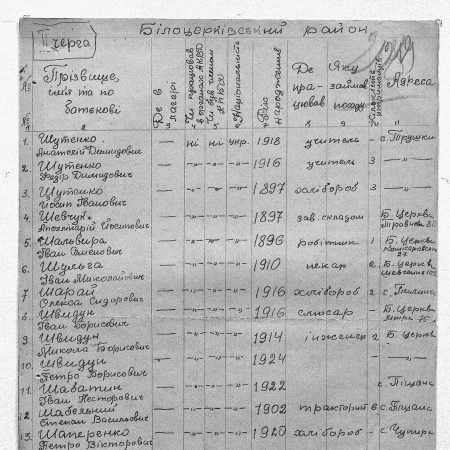 II черга
Білоцерківський район
№
Прізвище, ім'я та по батькові
Де в таборі
Чи працював в органах НКВД
Чи був членом
Національність
Рік народження
Де працював
Яку займав посаду
Кількість
Адреса
1. Шутенко Анатолій Демидович — ні ні укр. 1918 учитель — с. Трушки
2. Шутенко Федір Демидович — -"- -"- -"- 1916 учитель 3 -"-
3. Шутенко Йосип Іванович — -"- -"- -"- 1897 хлібороб 3 -"-
4. Шевчук Йосипович — -"- -"- -"- 1897 зав. складом — Б. Церква
5. Шальвира Іван — -"- -"- -"- 1896 робітник 1 Б. Церква
6. Шульга Іван Миколайович — -"- -"- -"- 1910 пекар 2 Б. Церква
7. Шарай Олекса Сидорович — -"- -"- -"- 1916 хлібороб 2 с.
8. Швидун Іван Борисович — -"- -"- -"- 1916 слюсар — Б. Церква
9. Швидун Микола Борисович — -"- -"- -"- 1914 інженер 2 Б. Церкв
10. Швидун Петро Борисович — -"- -"- -"- 1924 -"-
11. Шабатин Іван Несторович — -"- -"- -"- 1922 с. Піщана
12. Шабельний Степан Васильович — -"- -"- -"- 1902 тракторист 6 с. Піщана
13. Шаперенко Петро Вікторович — -"- -"- -"- 1920 хлібороб — с.